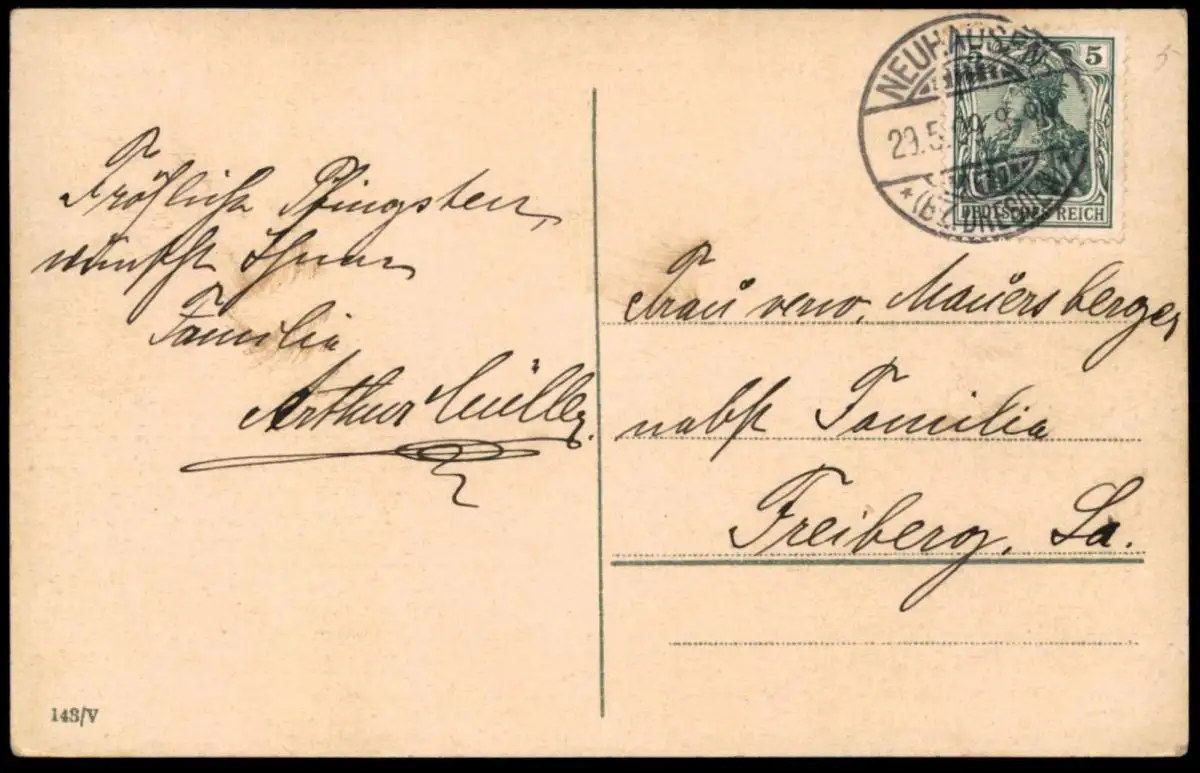 Fröhliche Pfingsten
wünscht Ihnen
Familie
Arthur Müller.
NEUHAUSEN
29.5. 09. 8-9N
(BZ. DRESDEN)
5 5
DEUTSCHES REICH
5
Frau verw. Mauersberger
nebst Familie
Freiberg, Sa.
143/V